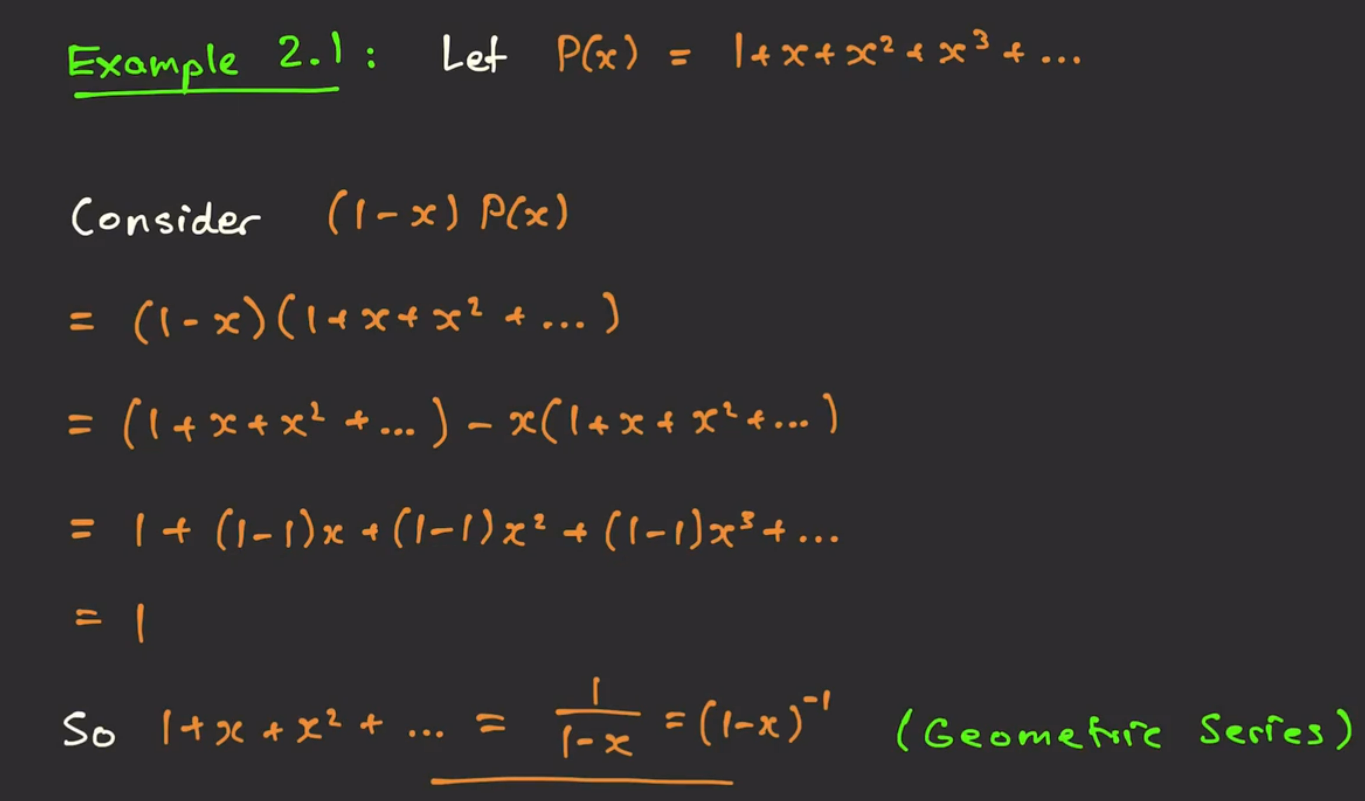 Example 2.1: Let P(x) = 1+x+x²+x³+...
Consider (1-x) P(x)
= (1-x)(1+x+x²+...)
= (1+x+x²+...) - x(1+x+x²+...)
= 1+(1-1)x+(1-1)x²+(1-1)x³+...
= 1
So 1+x+x²+... = 1/(1-x) = (1-x)⁻¹ (Geometric Series)